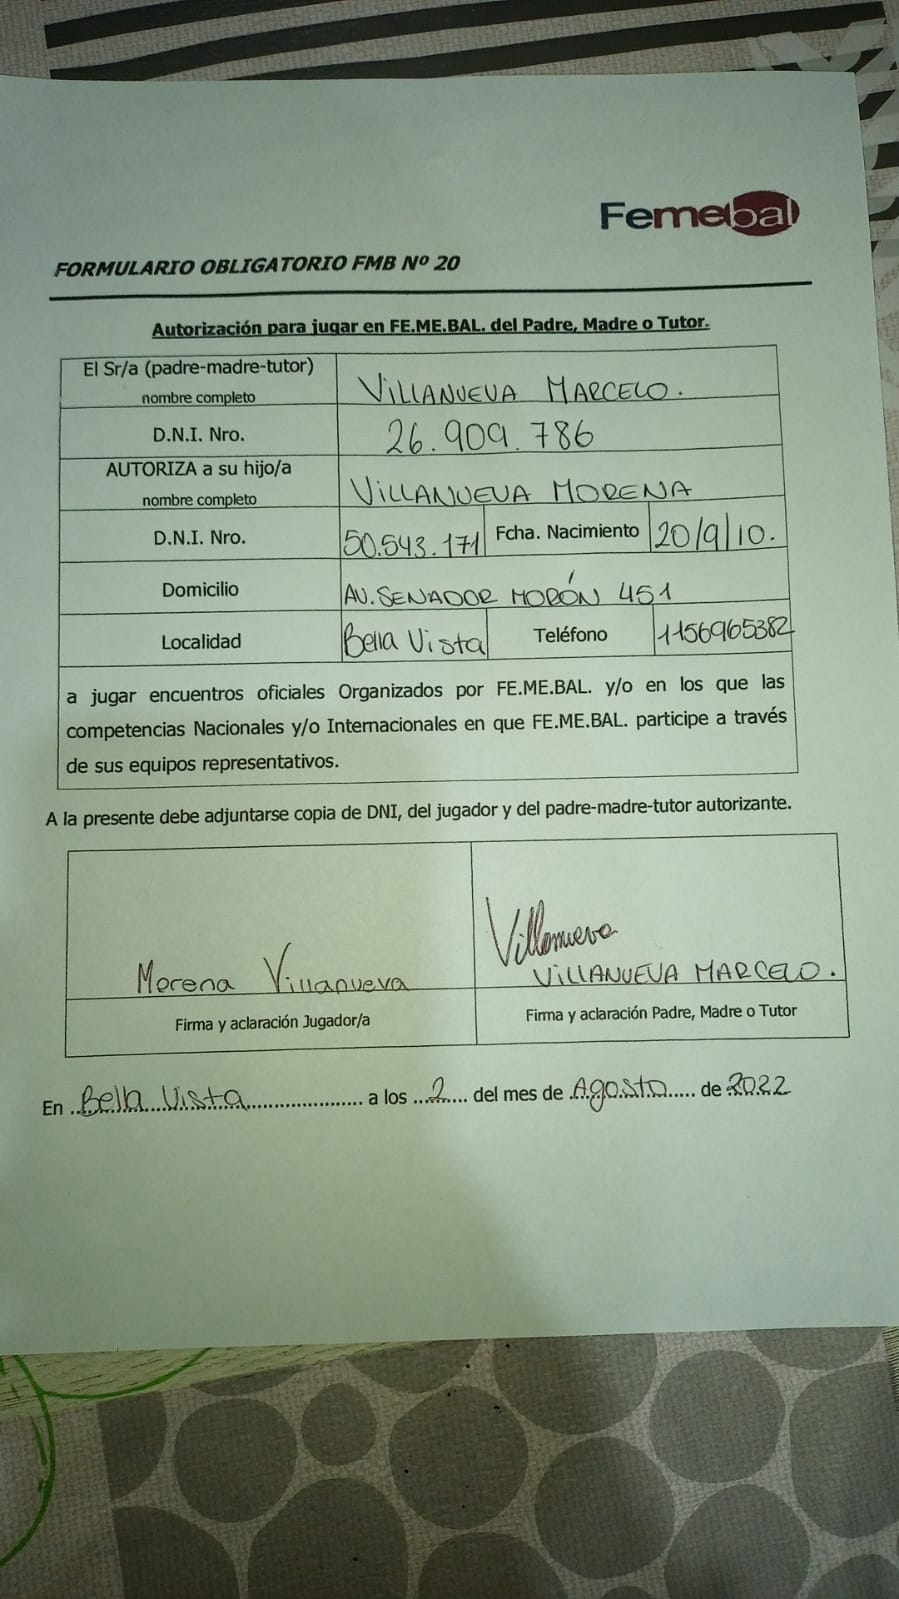 Femebal
FORMULARIO OBLIGATORIO FMB Nº 20
Autorización para jugar en FE.ME.BAL. del Padre, Madre o Tutor.
El Sr/a (padre-madre-tutor)
nombre completo
VILLANUEVA MARCELO.
D.N.I. Nro.
26.909.786
AUTORIZA a su hijo/a
nombre completo
VILLANUEVA MORENA
D.N.I. Nro.
50.543.171
Fcha. Nacimiento
20/9/10.
Domicilio
AV. SENADOR MORÓN 451
Localidad
Bella Vista
Teléfono
1156965382
a jugar encuentros oficiales Organizados por FE.ME.BAL. y/o en los que las
competencias Nacionales y/o Internacionales en que FE.ME.BAL. participe a través
de sus equipos representativos.
A la presente debe adjuntarse copia de DNI, del jugador y del padre-madre-tutor autorizante.
Morena Villanueva
Firma y aclaración Jugador/a
Villanueva
VILLANUEVA MARCELO.
Firma y aclaración Padre, Madre o Tutor
En Bella Vista a los 2 del mes de Agosto de 2022